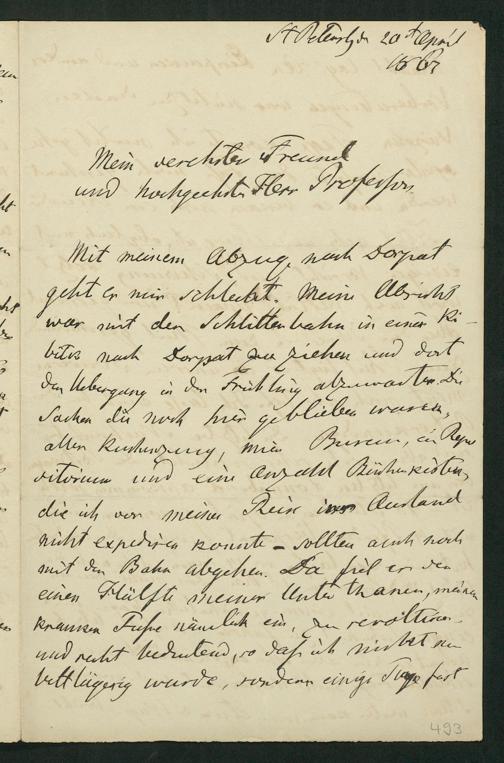 St Petersburg den 20st April
1867
Mein verehrter Freund
und hochgeehrter Herr Professor
Mit meinem Abzug nach Dorpat
geht es mir schlecht. Meine Absicht
war mit der Schlittenbahn in einer Ki-
bitke nach Dorpat zu ziehen und dort
den Uebergang in den Frühling abzuwarten. Die
Sachen die noch hier geblieben waren,
mein Bureau, ein Repo
sitorium und eine Anzahl Bücherkisten,
die ich vor meiner Reise ins Ausland
nicht expediren konnte – sollten auch noch
mit der Bahn abgehen. Da fiel es der
einen Hälfte meiner Unterthanen, meinen
kranken Füßen nämlich ein, zu revoltiren
und recht bedeutend, so daß ich nicht nur
bettlägerig wurde, sondern einige Tage fast
493